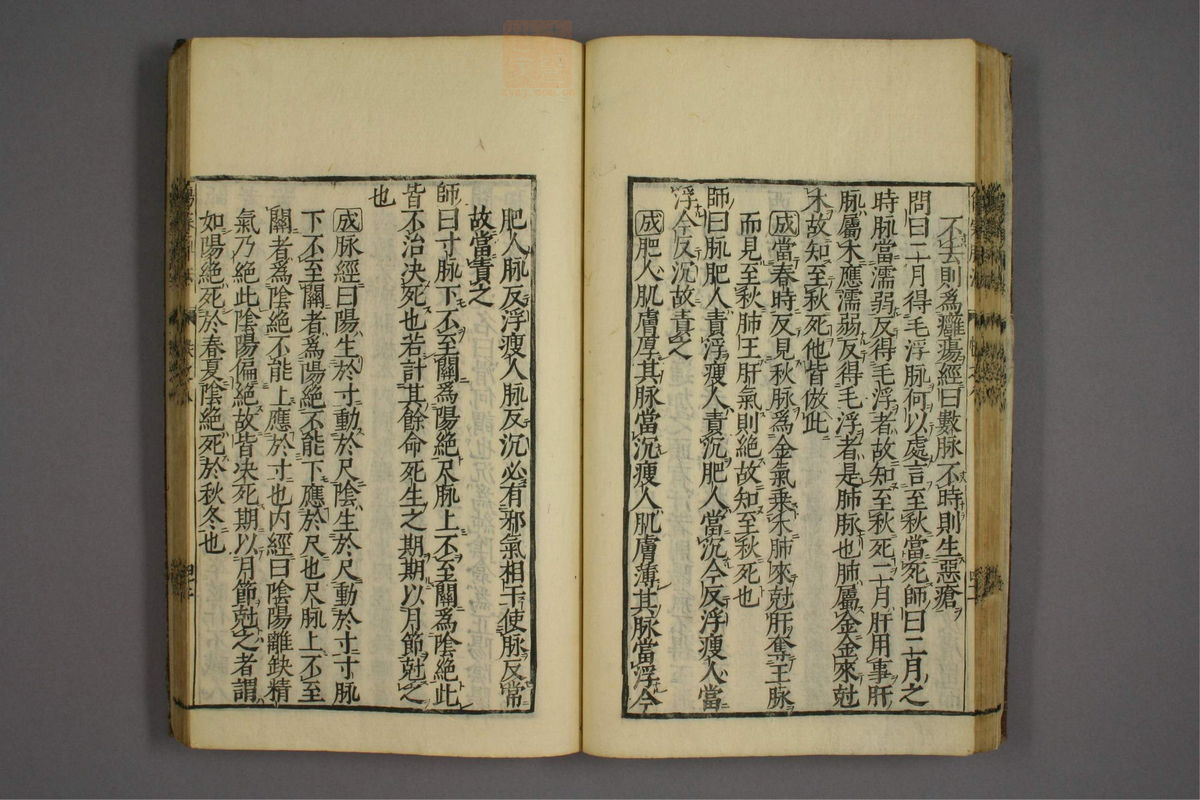 不去則爲癰瘍經曰數脉不時則生惡瘡
問曰二月得毛浮脉何以處言至秋當死師曰二月之
時脉當濡弱反得毛浮者故知至秋死二月肝用事肝
脉屬木應濡弱反得毛浮者是肺脉也肺屬金金來尅
木故知至秋死他皆倣此
成當春時反見秋脉爲金氣乘木肺來尅肝奪王脉
而見至秋肺王肝氣則絶故知至秋死也
師曰脉肥人責浮瘦人責沉肥人當沉今反浮瘦人當
浮今反沉故責之
成肥人肌膚厚其脉當沉瘦人肌膚薄其脉當浮今
肥人脉反浮瘦人脉反沉必有邪氣相干使脉反常
故當責之
師曰寸脉下不至關爲陽絶尺脉上不至關爲陰絶此
皆不治决死也若計其餘命死生之期期以月節尅之
也
成脉經曰陽生於寸動於尺陰生於尺動於寸寸脉
下不至關者爲陽絶不能下應於尺也尺脉上不至
關者爲陰絶不能上應於寸也内經曰陰陽離缺精
氣乃絶此陰陽偏絶故皆决死期以月節尅之者謂
如陽絶死於春夏陰絶死於秋冬也